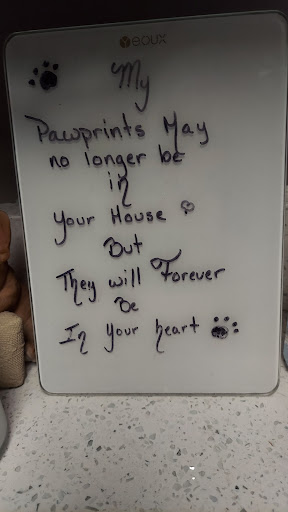 eoux
My
Pawprints May
no longer be
in
Your House
But
They will Forever
Be
In your heart